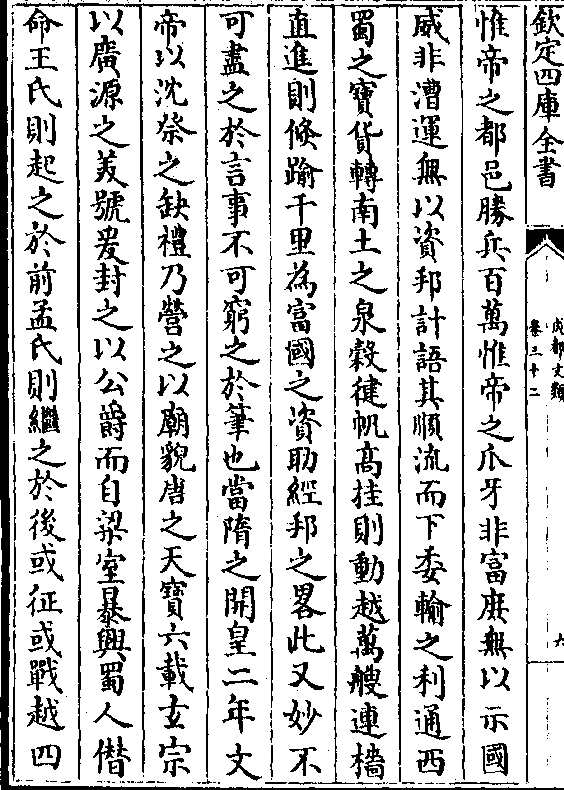 欽定四庫全書
成都文類
卷三十二
六
惟帝之都邑勝兵百萬惟帝之爪牙非富庶無以示國
威非漕運無以資邦計語其順流而下委輸之利通西
蜀之寶貨轉南土之泉穀徤帆髙挂則動越萬艘連檣
直進則倐踰千里為富國之資助經邦之畧此又妙不
可盡之於言事不可窮之於筆也當隋之開皇二年文
帝以沈祭之缺禮乃營之以廟貌唐之天寶六載玄宗
以廣源之美號爰封之以公爵而自梁室暴興蜀人僣
命王氏則起之於前孟氏則繼之於後或征或戰越四